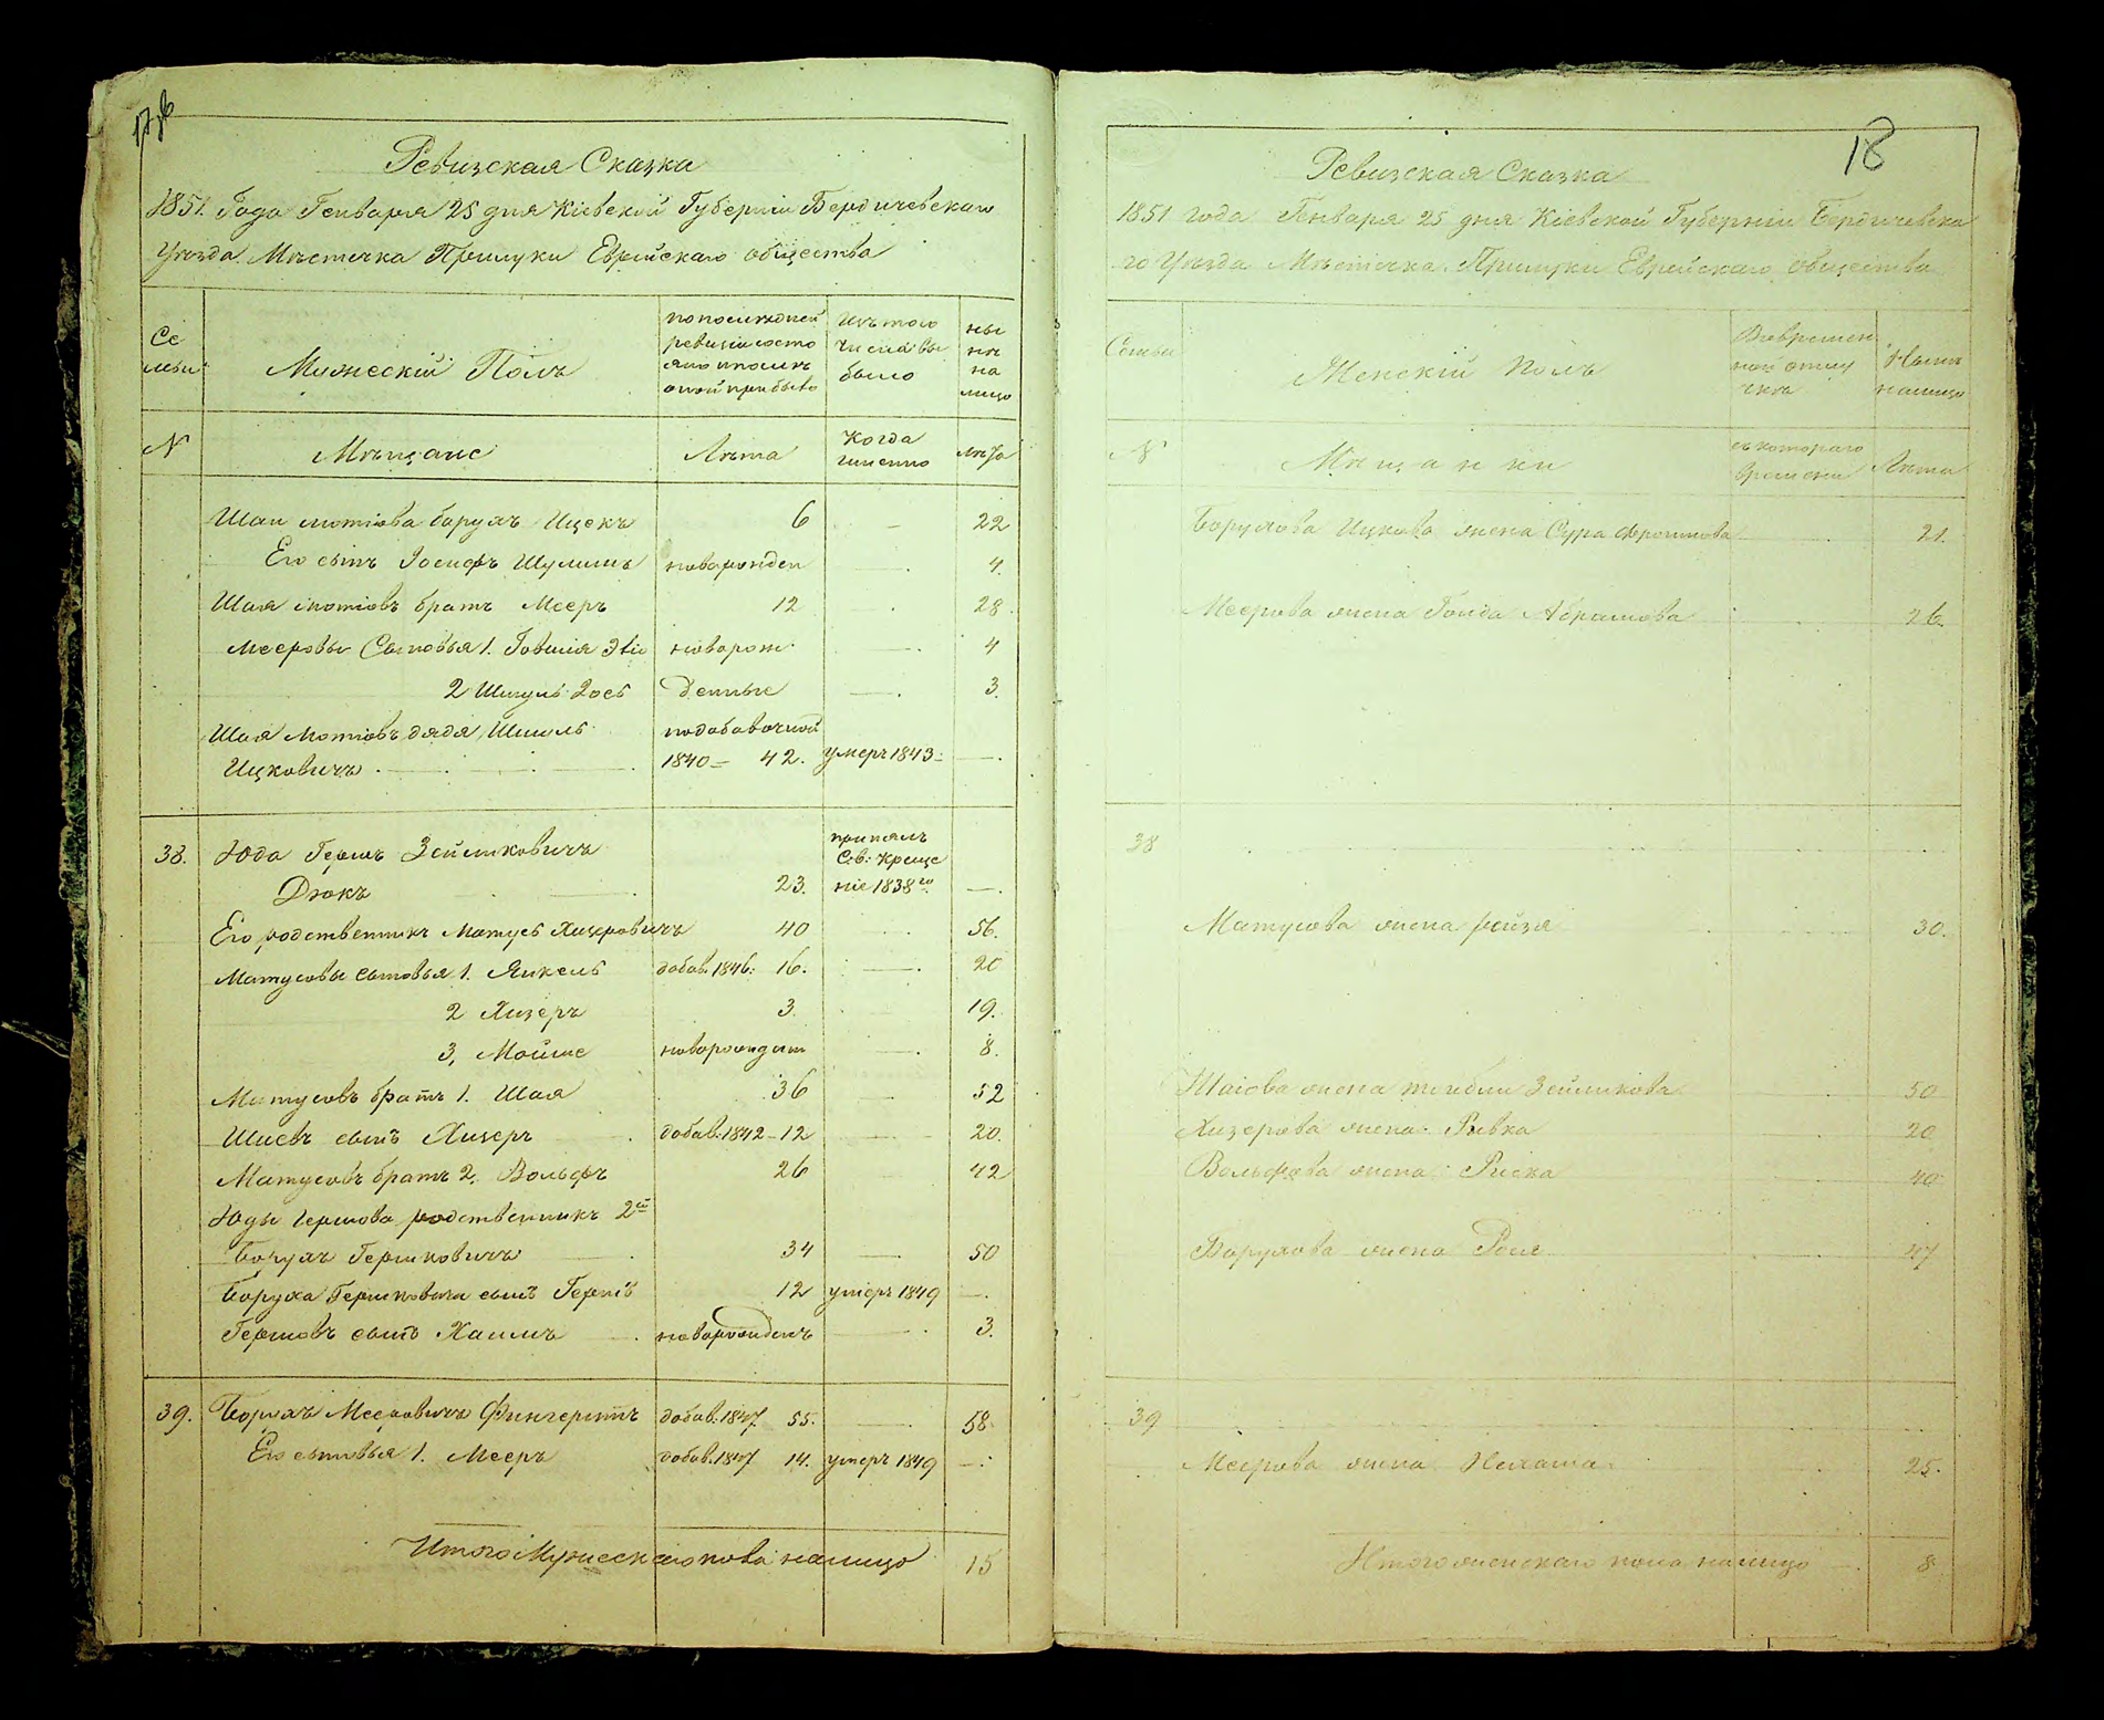 17об
Ревизская Сказка
1851. Года Генваря 25 дня Кіевской Губерніи Бердичевскаго
Уѣзда Мѣстечка Прилуки Еврейскаго общества
Се
мьи
Мужескій Полъ
по последней
ревизіи состо
яло и после
оной прибыло
Изъ того
числа вы
было
ны
нѣ
на
лицо
N
Мѣщане
Лѣта
Когда
именно
лѣта
Шаи мотіова барухъ Ицекъ 6 — 22
Его сынъ Іосифъ Шулимъ новорожден — 4.
Шая мотіовъ братъ Мееръ 12 28.
Мееровы Сыновья 1. Говшія новорож — 4
2 Шмуль Іось денные — 3.
Шая Мотіовъ дядя Шмиль подобавочной
Ицковичъ 1840 — 42. умеръ 1843 —.
38. Юда Гершъ Зейликовичъ принялъ
С.в: креще
Дюкъ 23. ніе 1838го —.
Его родственникъ Матусь Хизеровичъ 40 56.
Матусовы сыновья 1. Янкель добав. 1846: 16. — 20
2 Хизеръ 3. 19.
3, Мойше новорожден — 8.
Матусовъ братъ 1. Шая 36 — 52
Шиевъ сынъ Хизеръ добав: 1842 - 12 — 20.
Матусовъ братъ 2. Вольфъ 26 42
Юды Гершова родственникъ 2й
Борухъ Гершковичъ 34 — 50
Боруха Гершковича сынъ Гершъ 12 умеръ 1849 —.
Гершовъ сынъ Хаимъ новорожденъ — 3.
39. Борухъ Мееровичъ Фингерутъ добав. 1847 55. — 58.
Его сыновья 1. Мееръ добав. 1847 14. умеръ 1849 —.
Итого Мужескаго пола налицо 15
18
Ревизская Сказка
1851 года Генваря 25 дня Кіевской Губерніи Бердичевска
го Уѣзда Мѣстечка Прилуки Еврейскаго общества
Семьи
Женскій Полъ
Вовремен
ной отлу
чкѣ
Нынѣ
налицо
N
Мѣщанки
съ котораго
времени
Лѣта
Борухова Ицкова жена Сура Фроимова 21.
Меерова жена Голда Абрамова 26.
38
Матусова жена рейзя 30.
Шаіова жена Зейликова 50
Хизерова жена Ривка 20
Вольфова жена Риска 40
Борухова жена Роня 47
39
Меерова жена Нехама 25.
Итого женскаго пола налицо 8